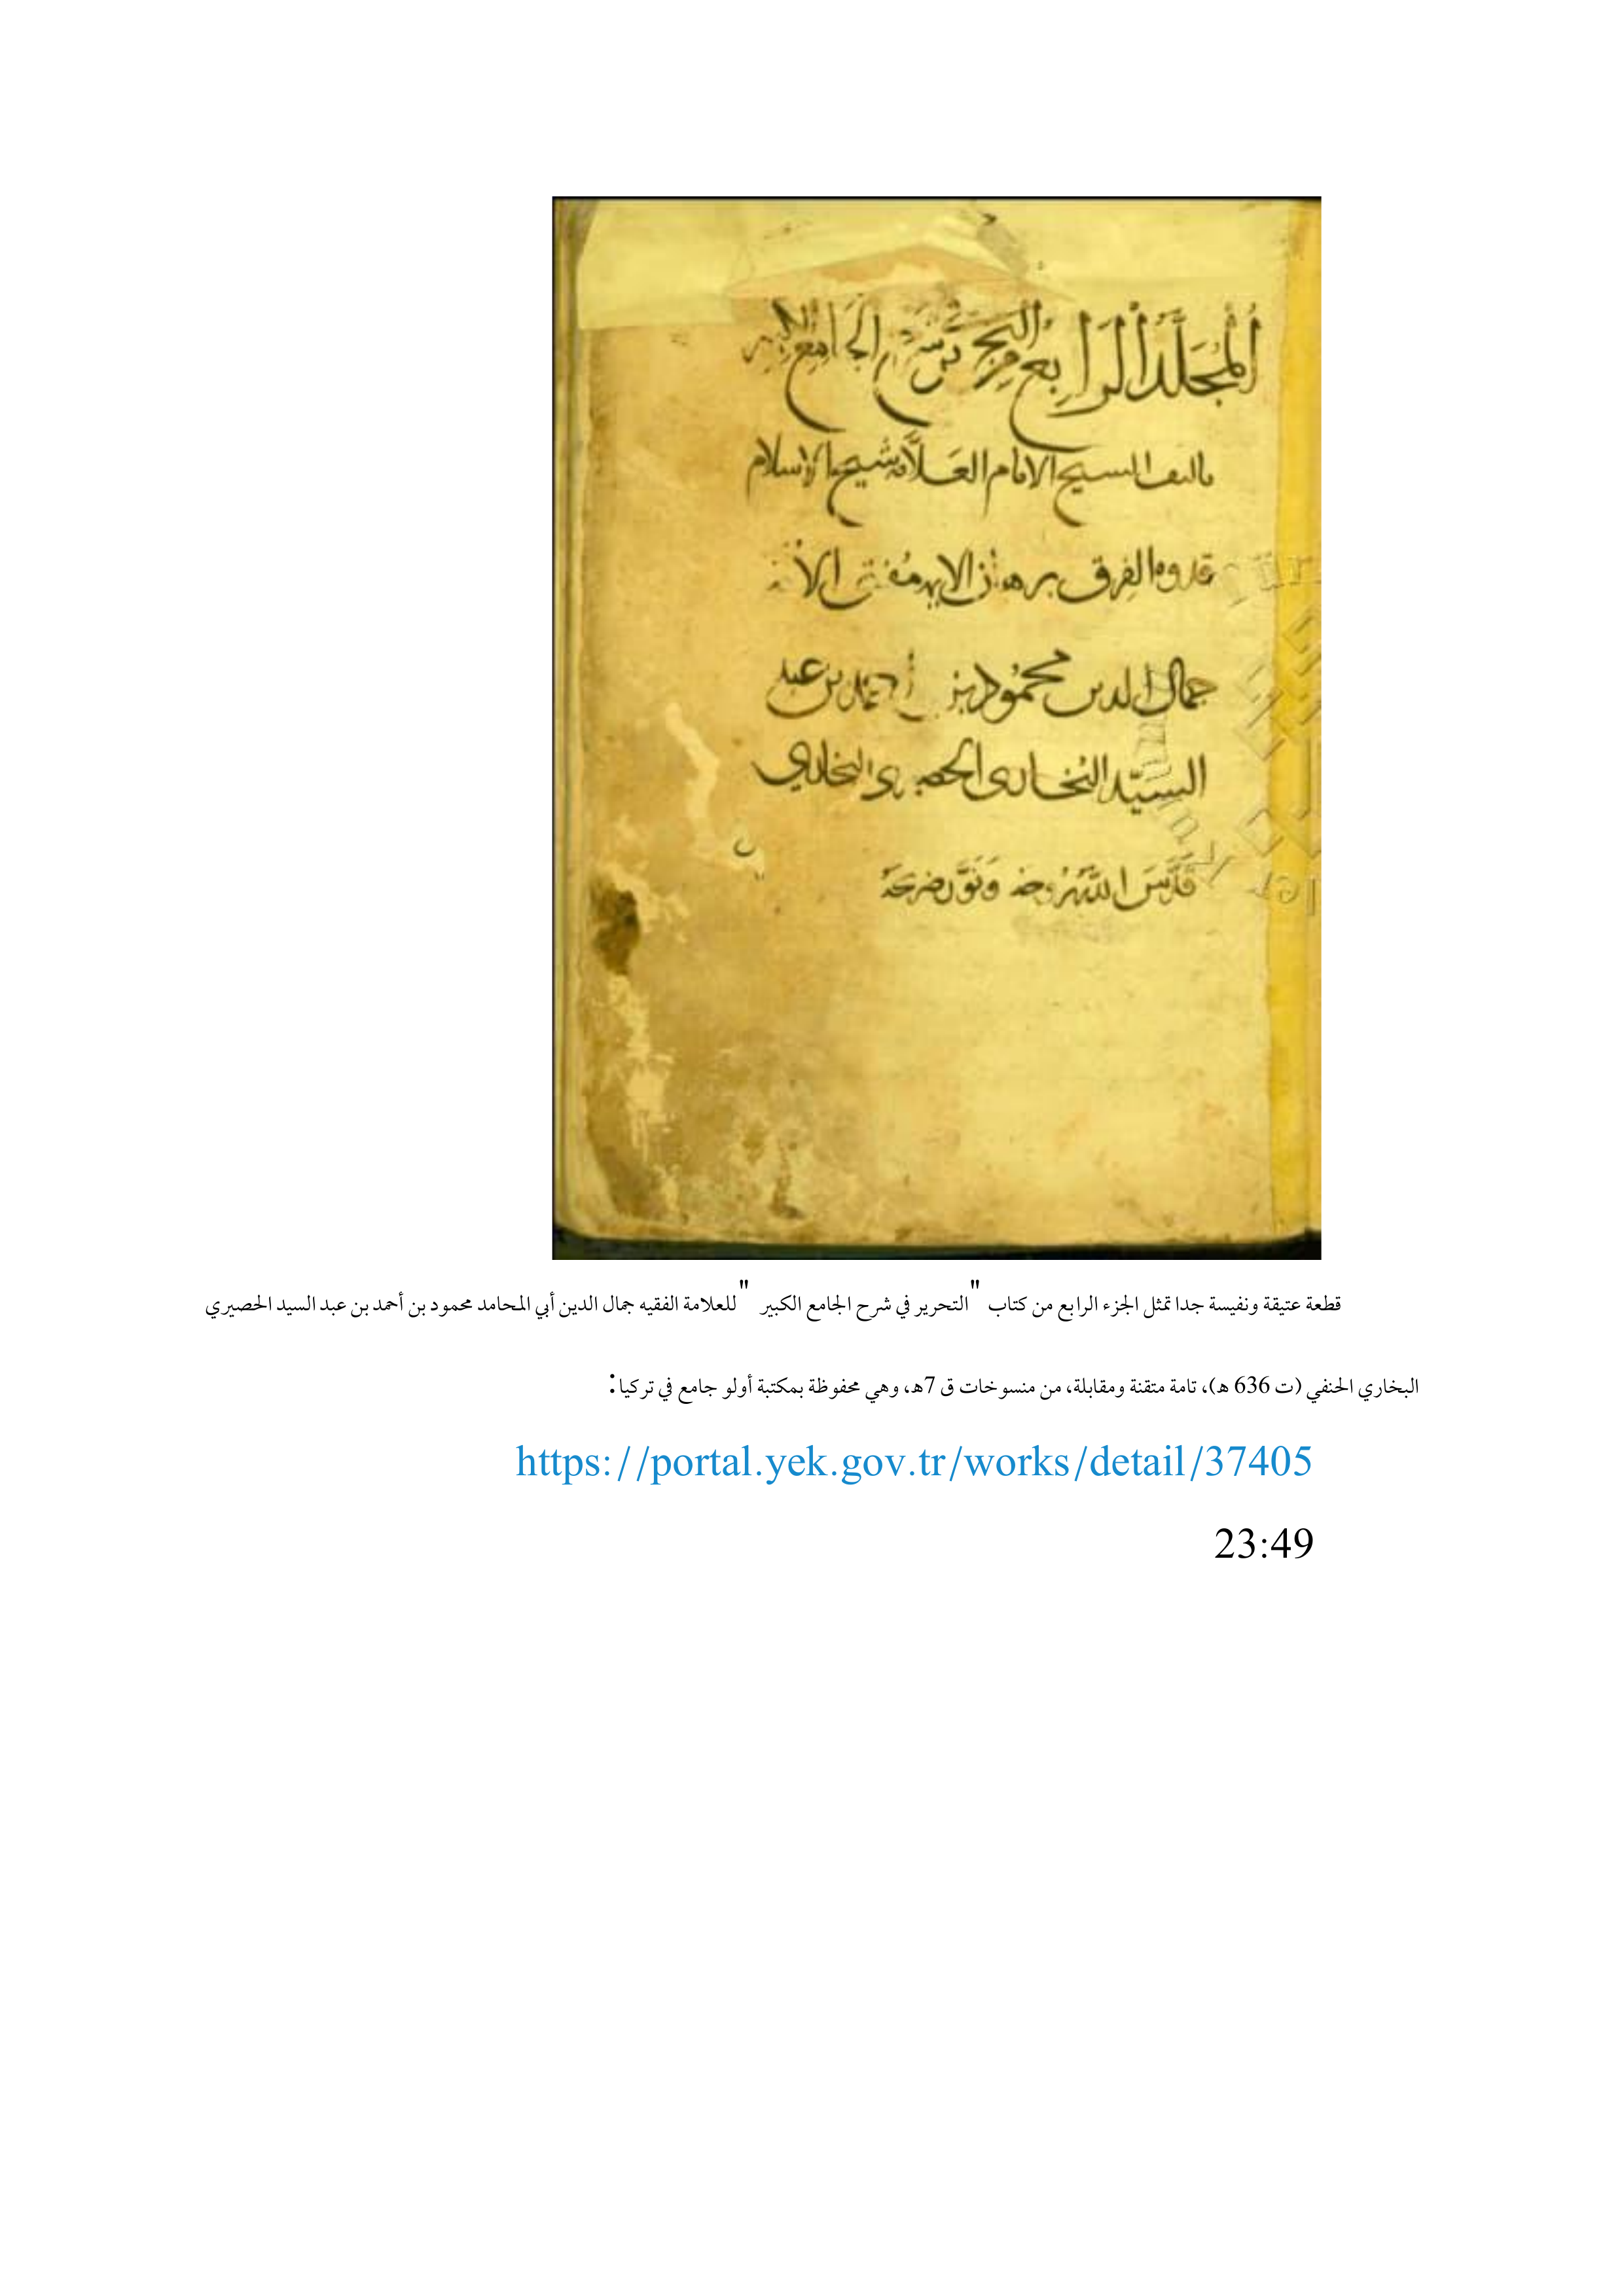 المجلد الرابع من التحرير في شرح الجامع الكبير
تاليف الشيخ الامام العلامة شيخ الاسلام
قدوة الفرق برهان الايمه مفتي
جمال الدين محمود بن أحمد بن عبد
السيد البخاري الحصيري البخاري
قدس الله روحه ونور ضريحه
قطعة عتيقة ونفيسة جدا تمثل الجزء الرابع من كتاب "التحرير في شرح الجامع الكبير" للعلامة الفقيه جمال الدين أبي المحامد محمود بن أحمد بن عبد السيد الحصيري
البخاري الحنفي (ت 636 هـ)، تامة متقنة ومقابلة، من منسوخات ق 7هـ، وهي محفوظة بمكتبة أولو جامع في تركيا:
https://portal.yek.gov.tr/works/detail/37405
23:49